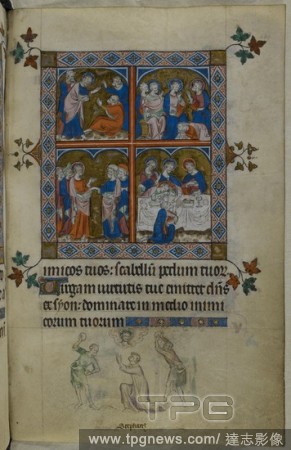 imicos tuos: scabellū pedum tuor
Virgam virtutis tue emittet dn̄s
ex syon: dominare in medio inimi
corum tuorum
Stephan
TPG
www.tpgnews.com / 達志影像